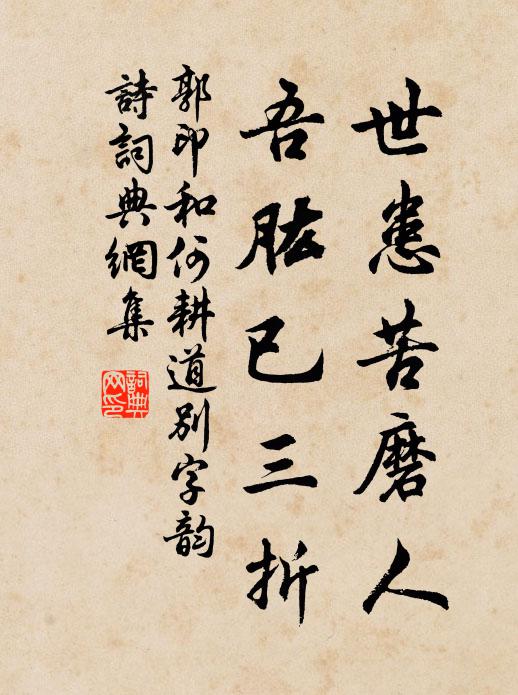 世患苦磨人
吾肱已三折
郭印和何耕道别字韵
詩詞典網集
詞典網印